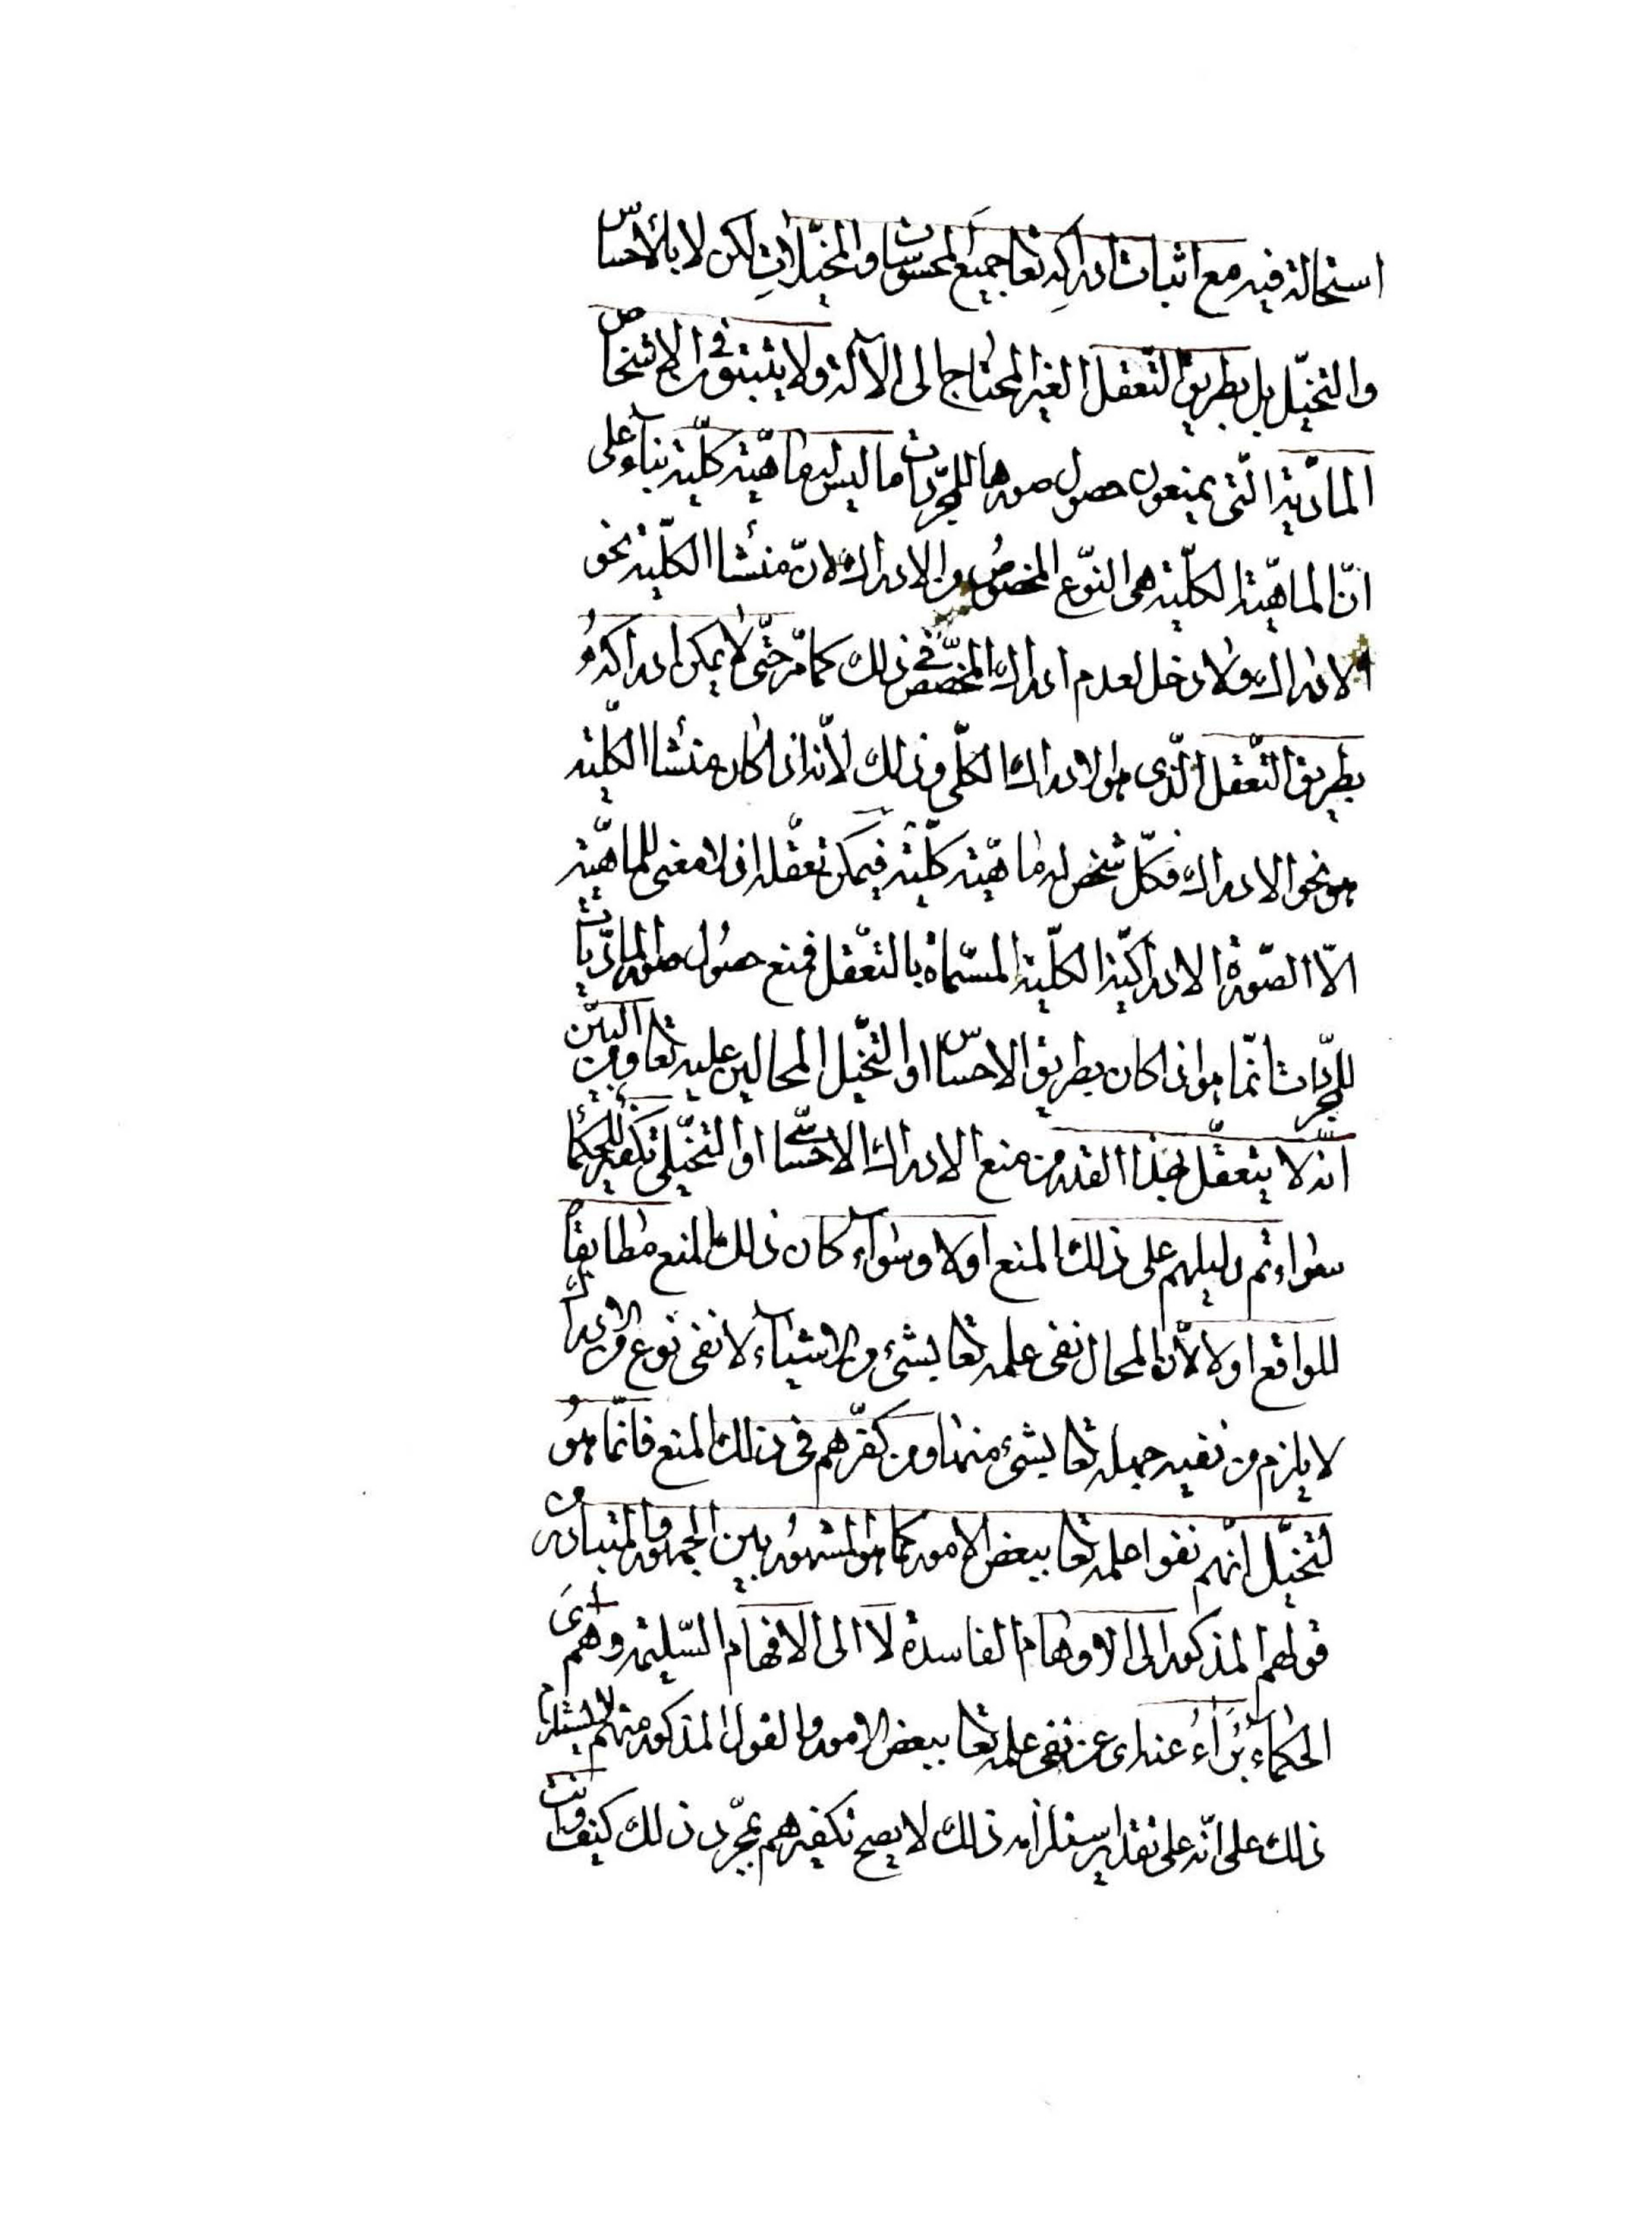 استحالة فيه مع اثبات ادراكه تعا جميع المحسوسات والمخيّلات لكن لا بالاحساس
والتخيّل بل بطريق التّعقل الغير المحتاج الى الآلة ولا يثبتون في الاشخاص
المادّية الّتى يمنعون حصول صورها للمجرّدات ما ليس له ماهيّة كلّية بناء على
انّ الماهيّة الكلّية هى النوع المخصوص من الادراك لانّ منشأ الكلّية نحو
الادراك ولا دخل لعدم ادراك المخصّص في ذلك كما مرّ حتّى لا يمكن ادراكه
بطريق التّعقل الّذى هو الادراك الكلّى وذلك لانّه اذا كان منشأ الكلّية
هو نحو الادراك فكلّ شخص له ماهيّة كلّية فيمكن تعقّله اذ لا معنى للماهيّة
الّا الصّورة الادراكيّة الكلّية المسمّاة بالتعّقل فمنع حصول صور المادّيات
للمجرّدات انّما هو اذا كان بطريق الاحساس او التخّيل المحالين عليه تعا ومن البيّن
انّه لا يتعقّل بهذا القدر من منع الادراك الاحساسّى او التخيّلى تكفير الحكماء
سواء تم دليلهم على ذلك المنع اولا وسواء كان ذلك المنع مطابقاً
للواقع اولا لانّ المحال نفى علمه تعا بشئ من الاشياء لا نفى نوع من الادراك
لا يلزم من نفيه جهله تعا بشئ منها ومن كفّرهم فى ذلك المنع فانّما هو
لتخيّل انّهم نفوا علمه تعا ببعض الامور كما هو المشهور بين الجمهور والمتبادر من
قولهم المذكور الى الاوهام الفاسدة لا الى الافهام السّليمة وهم اى
الحكماء بُرَآءُ عندى عن نفى علمه تعا ببعض الامور والقول المذكور منهم لا يستلزم
ذلك على انّه على تقدير استلزامه ذلك لا يصح تكفيرهم بمجرّد ذلك كيف وانت